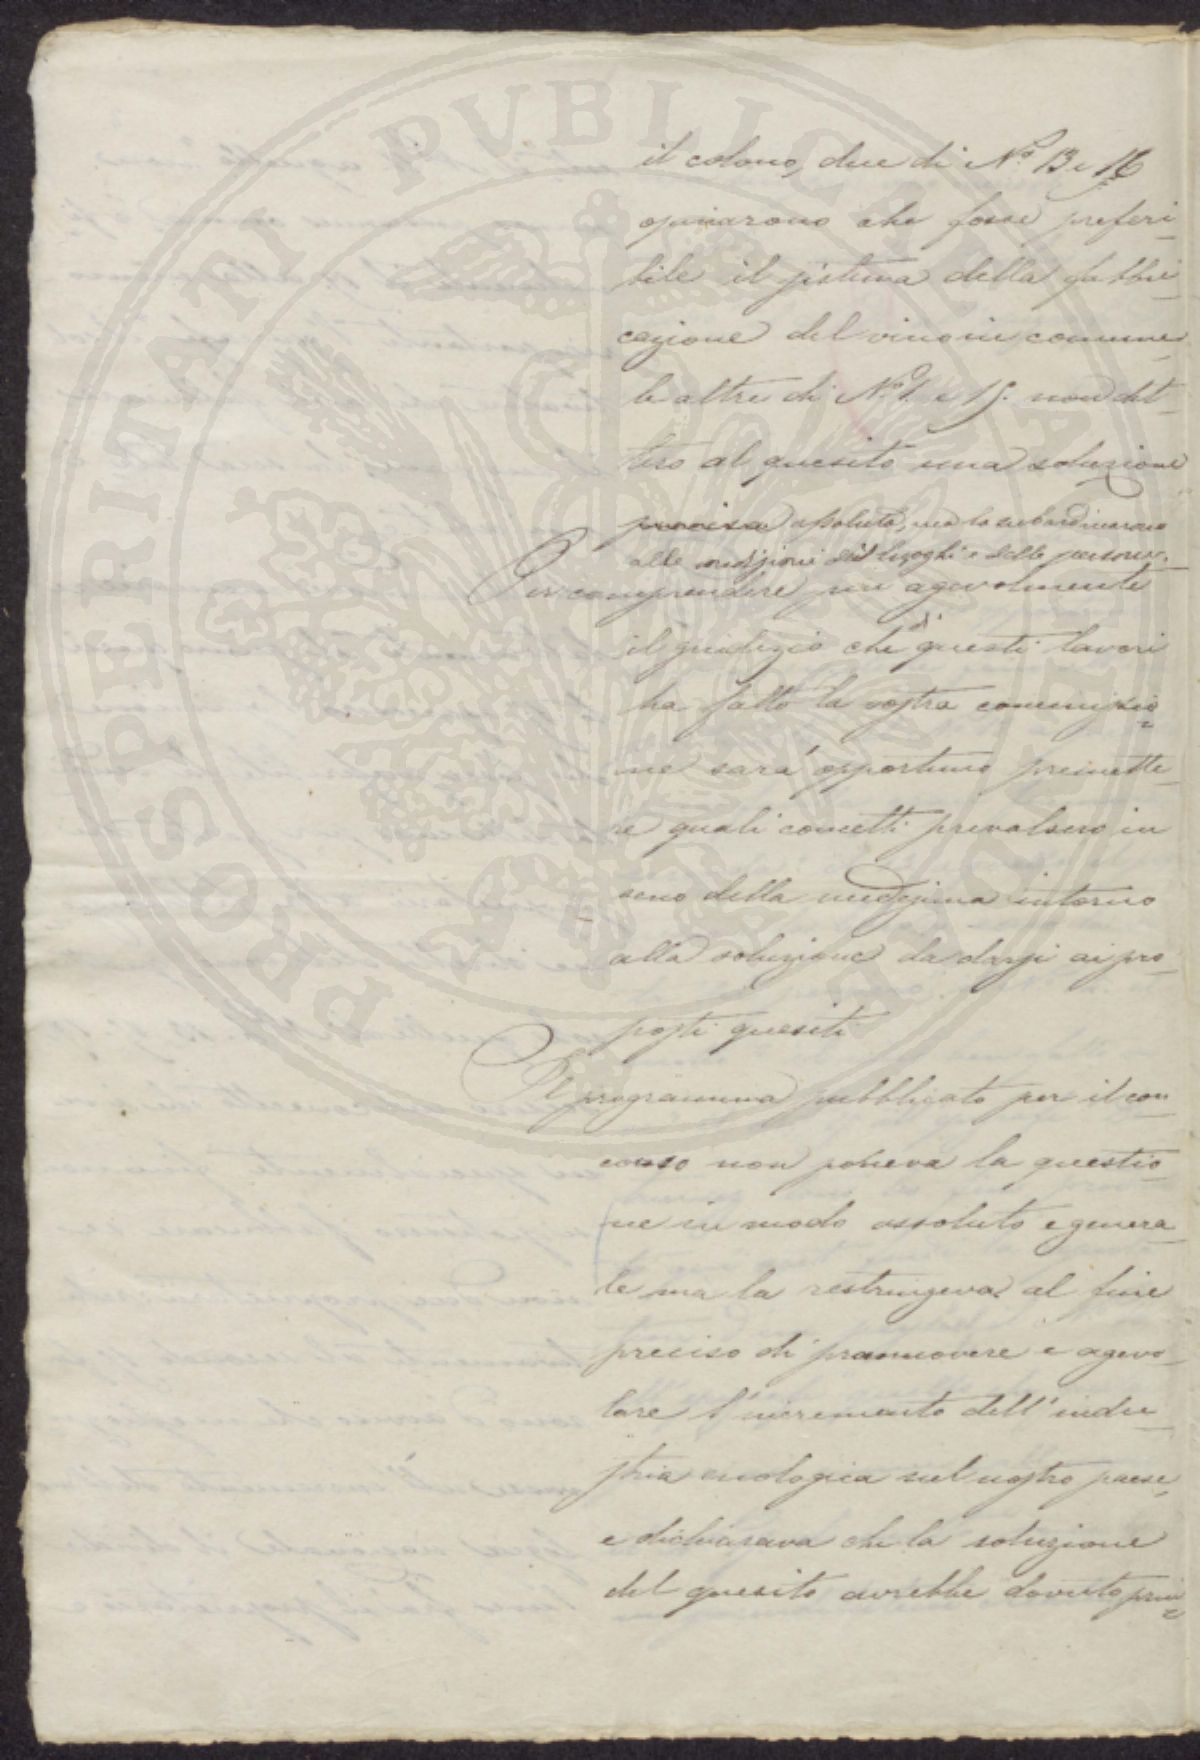 PROSPERITATI PUBLICAE AUGENDAE
il colono, due di N.º 13 e 16
opinarono che fosse preferi-
bile il sistema della fabbri-
cazione del vino in comune
le altre di N.º 1. e 15. non det-
tero al quesito una soluzione
precisa assoluta, ma la subordinarono
alle condizioni dei luoghi e delle persone.
Per comprendere più agevolmente
il giudizio che di questi lavori
ha fatto la vostra commissio-
ne sarà opportuno premette-
re quali concetti prevalsero in
seno della medesima intorno
alla soluzione da darsi ai pro-
posti quesiti
Il programma pubblicato per il con-
corso non poneva la questio-
ne in modo assoluto e genera-
le ma la restringeva al fine
preciso di promuovere e agevo-
lare l'incremento dell'indu-
stria enologica nel nostro paese,
e dichiarava che la soluzione
del quesito avrebbe dovuto prin-